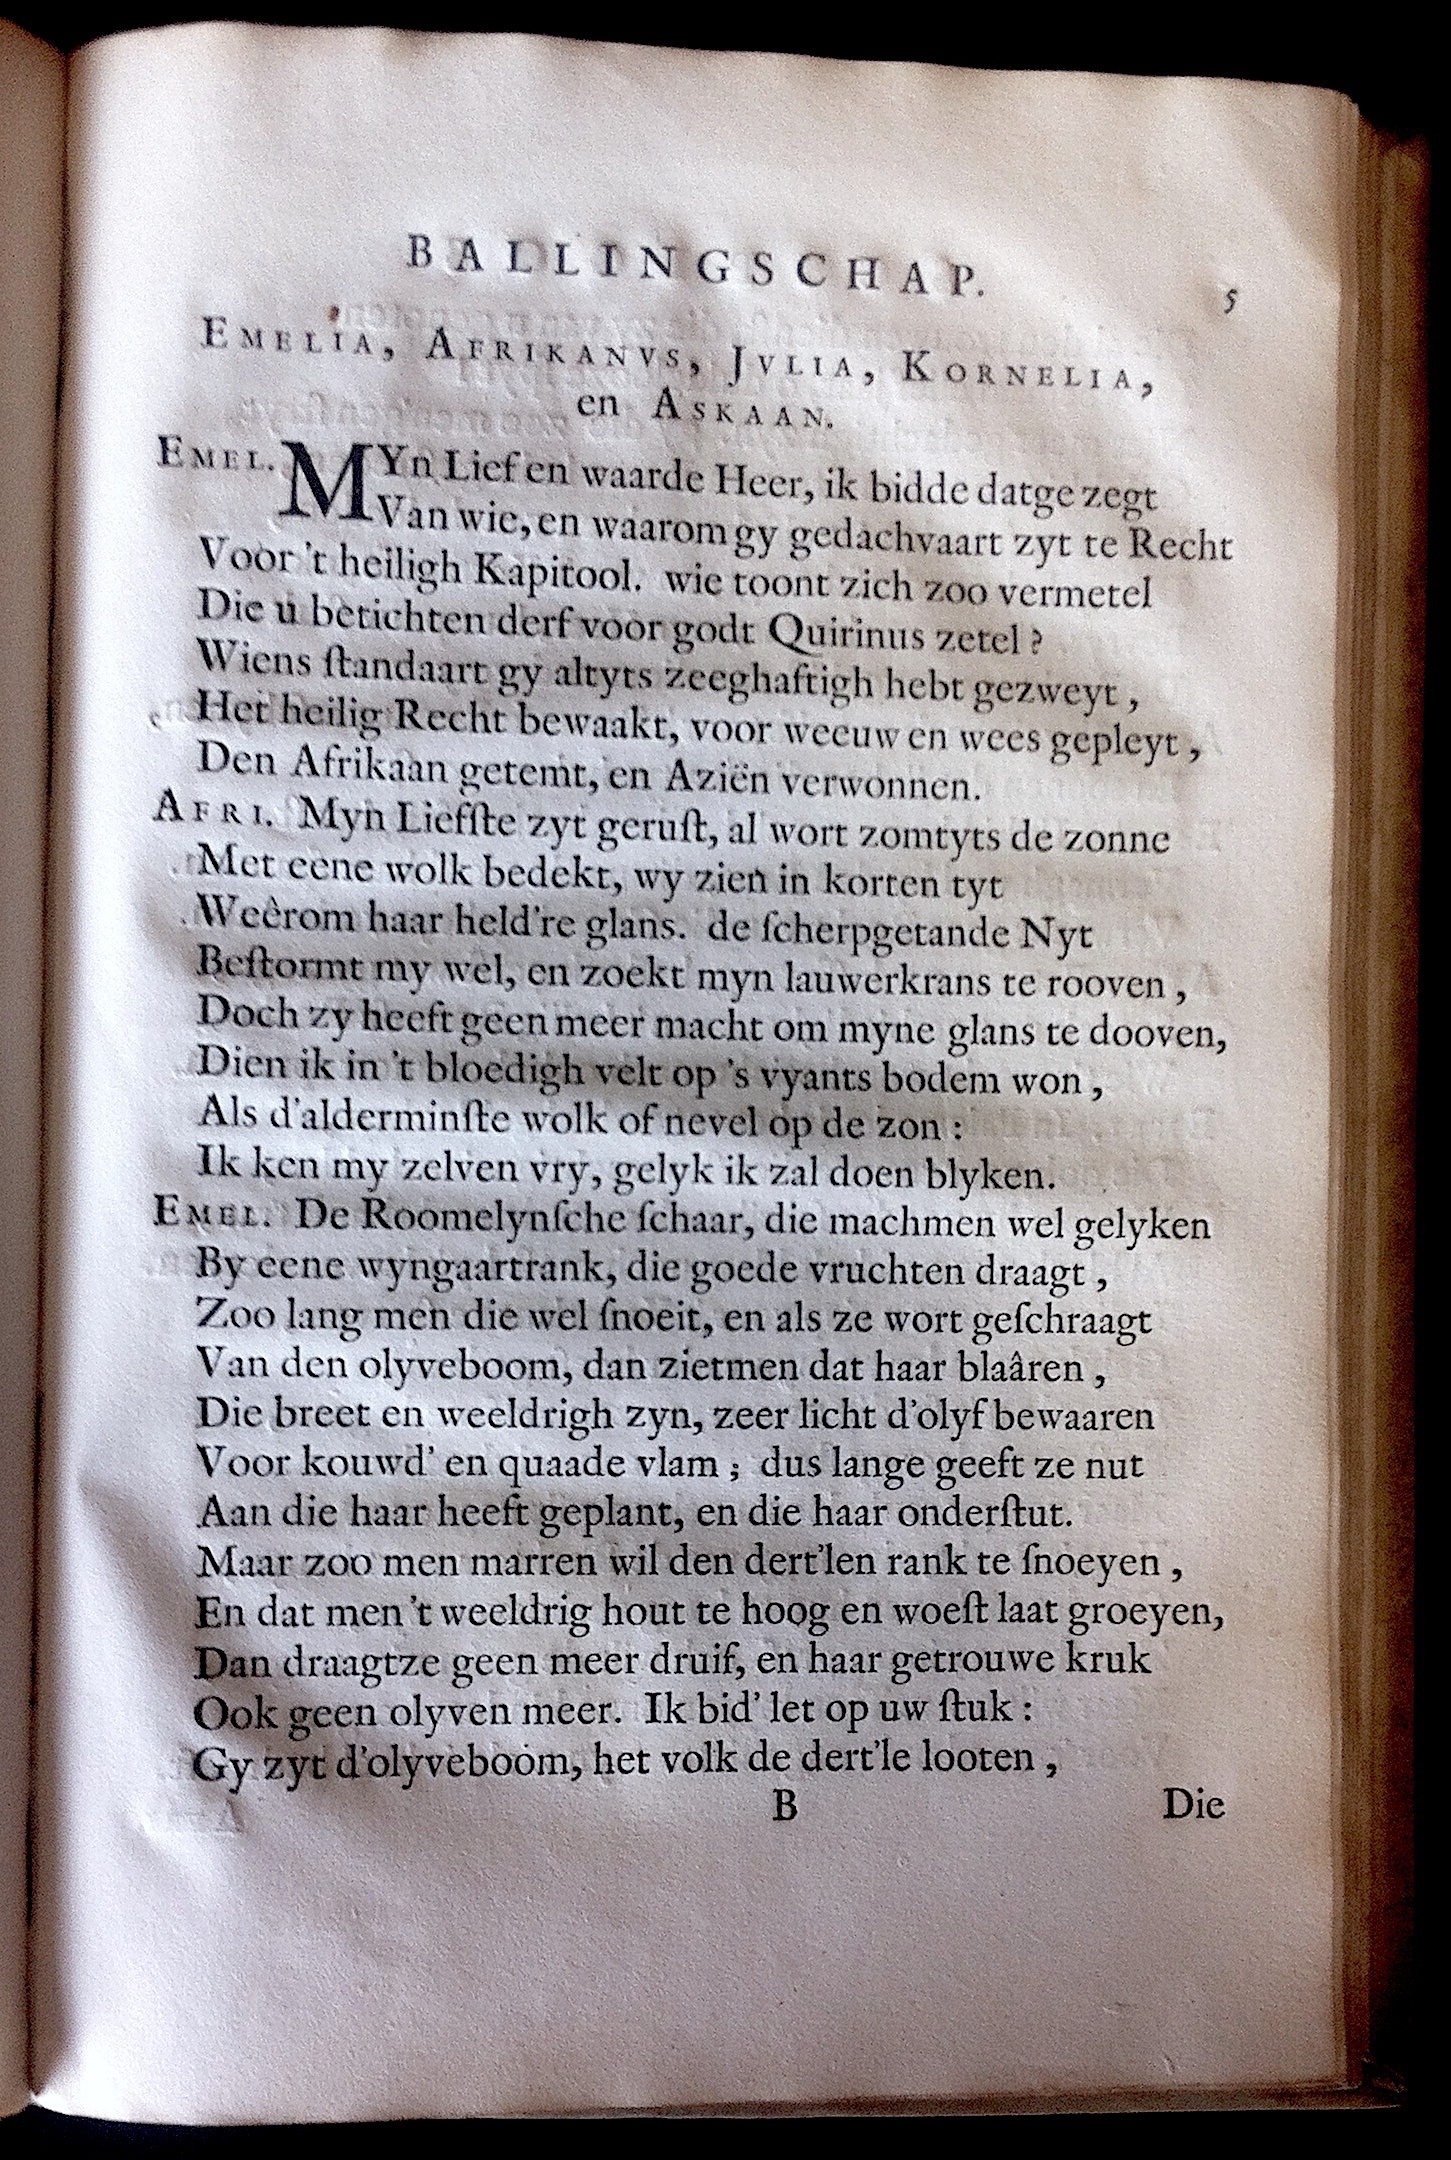 BALLINGSCHAP.
5
EMELIA, AFRIKANVS, JVLIA, KORNELIA,
en ASKAAN.
EMEL. MYn Lief en waarde Heer, ik bidde datge zegt
Van wie, en waarom gy gedachvaart zyt te Recht
Voor 't heiligh Kapitool. wie toont zich zoo vermetel
Die u betichten derf voor godt Quirinus zetel?
Wiens ſtandaart gy altyts zeeghaftigh hebt gezweyt,
Het heilig Recht bewaakt, voor weeuw en wees gepleyt,
Den Afrikaan getemt, en Aziën verwonnen.
AFRI. Myn Liefſte zyt geruſt, al wort zomtyts de zonne
Met eene wolk bedekt, wy zien in korten tyt
Weêrom haar held're glans. de ſcherpgetande Nyt
Beſtormt my wel, en zoekt myn lauwerkrans te rooven,
Doch zy heeft geen meer macht om myne glans te dooven,
Dien ik in 't bloedigh velt op 's vyants bodem won,
Als d'alderminſte wolk of nevel op de zon:
Ik ken my zelven vry, gelyk ik zal doen blyken.
EMEL. De Roomelynſche ſchaar, die machmen wel gelyken
By eene wyngaartrank, die goede vruchten draagt,
Zoo lang men die wel ſnoeit, en als ze wort geſchraagt
Van den olyveboom, dan zietmen dat haar blaâren,
Die breet en weeldrigh zyn, zeer licht d'olyf bewaaren
Voor kouwd' en quaade vlam; dus lange geeft ze nut
Aan die haar heeft geplant, en die haar onderſtut.
Maar zoo men marren wil den dert'len rank te ſnoeyen,
En dat men 't weeldrig hout te hoog en woeſt laat groeyen,
Dan draagtze geen meer druif, en haar getrouwe kruk
Ook geen olyven meer. Ik bid' let op uw ſtuk:
Gy zyt d'olyveboom, het volk de dert'le looten,
B
Die